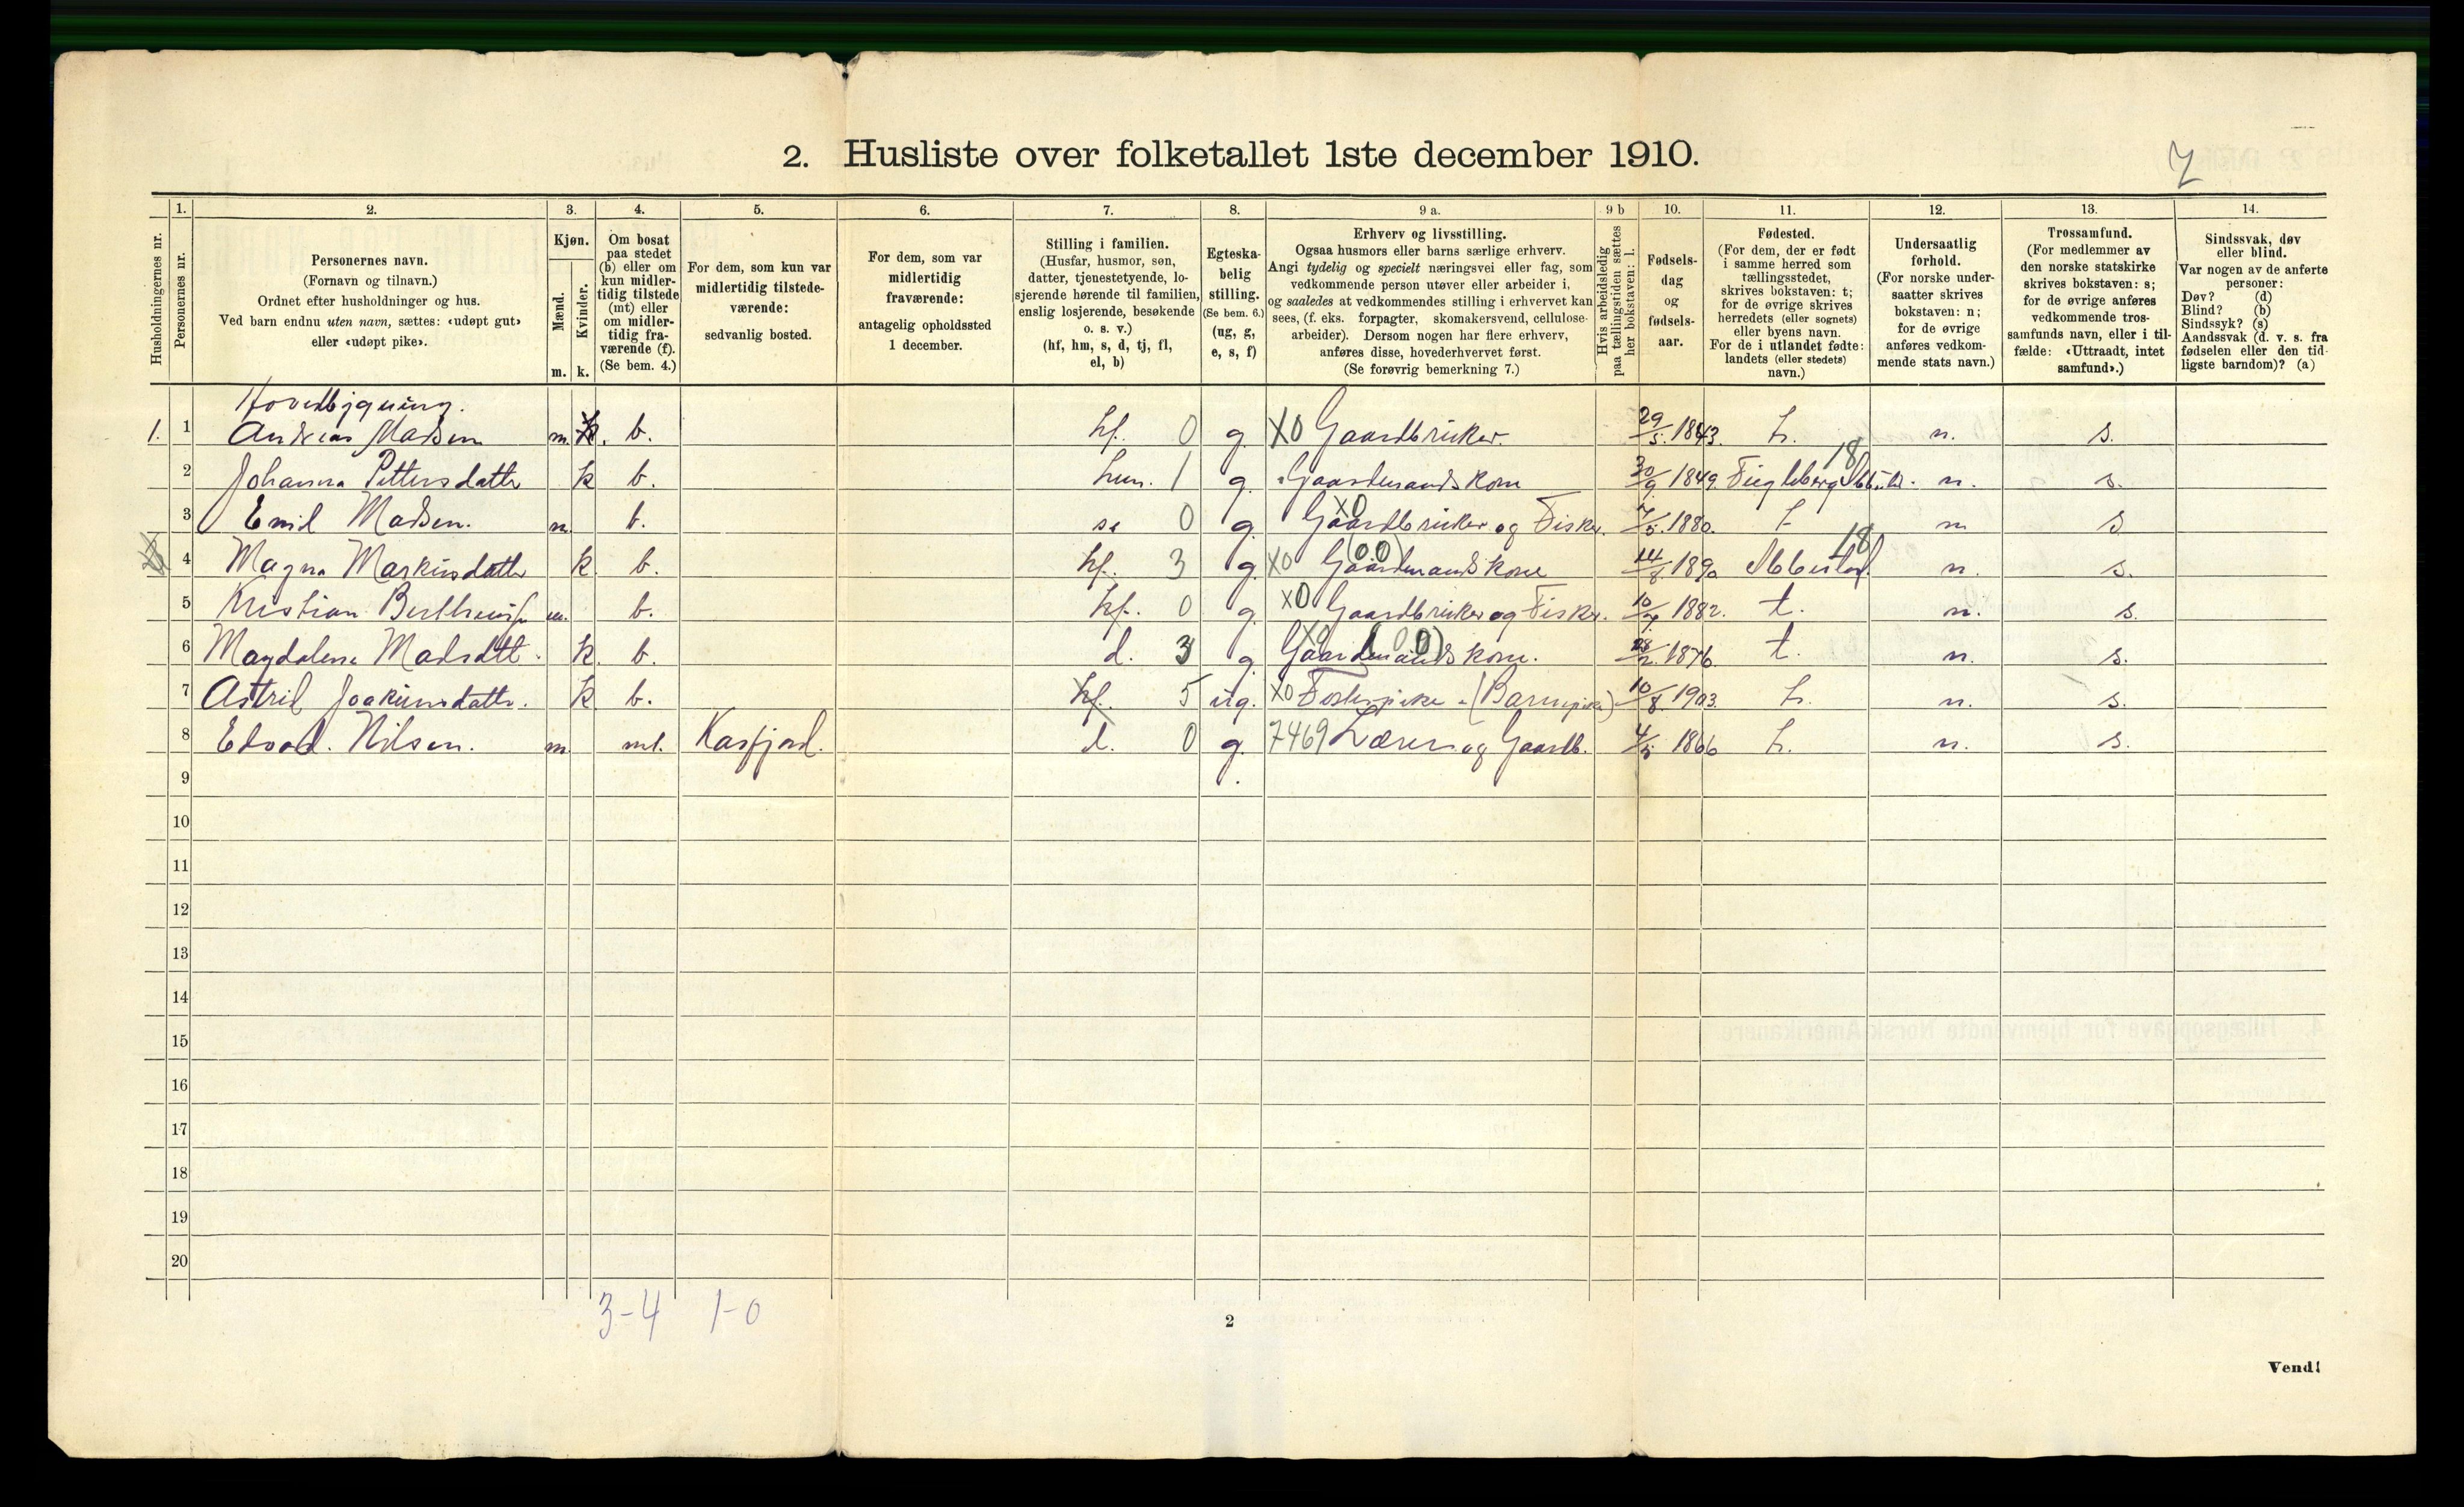 2. Husliste over folketallet 1ste december 1910.
7
Husholdningernes nr.
1.
Personernes nr.
2.
Personernes navn.
(Fornavn og tilnavn.)
Ordnet efter husholdninger og hus.
Ved barn endnu uten navn, sættes: «udøpt gut»
eller «udøpt pike».
3.
Kjøn.
Mænd.
Kvinder.
m. k.
4.
Om bosat
paa stedet
(b) eller om
kun midler-
tidig tilstede
(mt) eller
om midler-
tidig fra-
værende (f).
(Se bem. 4.)
5.
For dem, som kun var
midlertidig tilstede-
værende:
sedvanlig bosted.
6.
For dem, som var
midlertidig
fraværende:
antagelig opholdssted
1 december.
7.
Stilling i familien.
(Husfar, husmor, søn,
datter, tjenestetyende, lo-
sjerende hørende til familien,
enslig losjerende, besøkende
o. s. v.)
(hf, hm, s, d, tj, fl,
el, b)
8.
Egteska-
belig
stilling.
(Se bem. 6.)
(ug, g,
e, s, f)
9 a.
Erhverv og livsstilling.
Ogsaa husmors eller barns særlige erhverv.
Angi tydelig og specielt næringsvei eller fag, som
vedkommende person utøver eller arbeider i,
og saaledes at vedkommendes stilling i erhvervet kan
sees, (f. eks. forpagter, skomakersvend, cellulose-
arbeider). Dersom nogen har flere erhverv,
anføres disse, hovederhvervet først.
(Se forøvrig bemerkning 7.)
9 b
Hvis arbeidsledig
paa tællingstiden sættes
her bokstaven: l.
10.
Fødsels-
dag
og
fødsels-
aar.
11.
Fødested.
(For dem, der er født
i samme herred som
tællingsstedet,
skrives bokstaven: t;
for de øvrige skrives
herredets (eller sognets)
eller byens navn.
For de i utlandet fødte:
landets (eller stedets)
navn.)
12.
Undersaatlig
forhold.
(For norske under-
saatter skrives
bokstaven: n;
for de øvrige
anføres vedkom-
mende stats navn.)
13.
Trossamfund.
(For medlemmer av
den norske statskirke
skrives bokstaven: s;
for de øvrige anføres
vedkommende tros-
samfunds navn, eller i til-
fælde: «Uttraadt, intet
samfund».)
14.
Sindssvak, døv
eller blind.
Var nogen av de anførte
personer:
Døv? (d)
Blind? (b)
Sindssyk? (s)
Aandssvak (d. v. s. fra
fødselen eller den tid-
ligste barndom)? (a)
Hovedbygning.
1. 1 Andreas Madsen m. b. hf. 0 g. X0 Gaardbruker. 29/5. 1843. t. n. s.
2 Johanna Pettersdatter k b. hm. 1 g. Gaardmandskone 30/9. 1849. 18 n. s.
3 Emil Madsen. m. b. s. 0 g. X0 Gaardbruker og Fisker. 7/5. 1880. t n s
4 Magna Markusdatter k. b. hf. 3 g. X0 (00) Gaardmandskone 14/8. 1890 18 n. s.
5 Kristian m. b. hf. 0 g. X0 Gaardbruker og Fisker. 1882. t. n. s.
6 Magdalena Madsdtt. k. b. d. 3 g. X0 (00) Gaardmandskone. 1876 t. n. s.
7 Astrid Joakimsdatter. k b. hf. 5 ug. X0 Fosterpike (Barnepike) 10/8. 1903. t. n. s.
8 Edvard. Nilsen. m. mt. Kasfjord. d. 0 g. 7469 Lærer og Gaardb. 4/5 1866 t. n. s.
9
10
11
12
13
14
15
16
17
18
19
20
3-4 1-0
2
Vend!